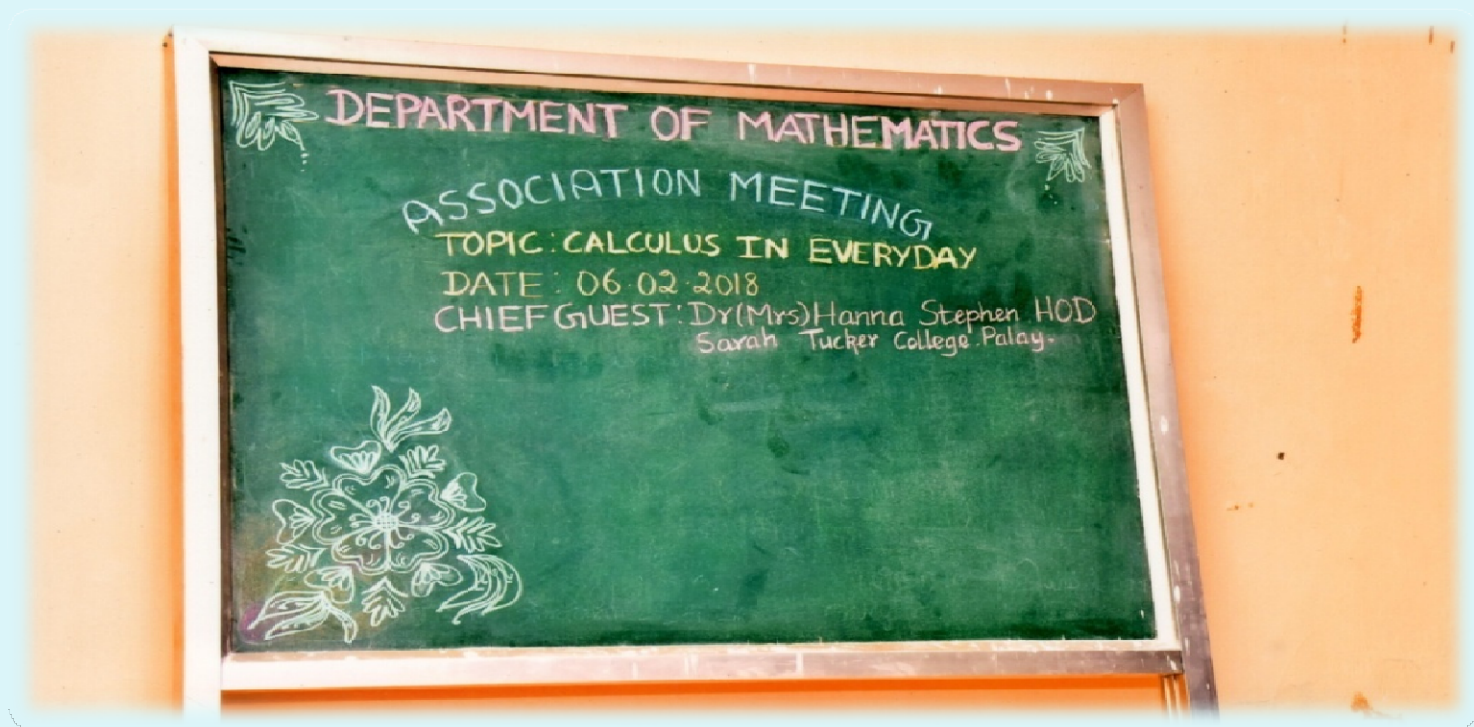 DEPARTMENT OF MATHEMATICS
ASSOCIATION MEETING
TOPIC: CALCULUS IN EVERYDAY
DATE: 06.02.2018
CHIEF GUEST: Dr(Mrs)Hanna Stephen HOD
Sarah Tucker College.Palay.